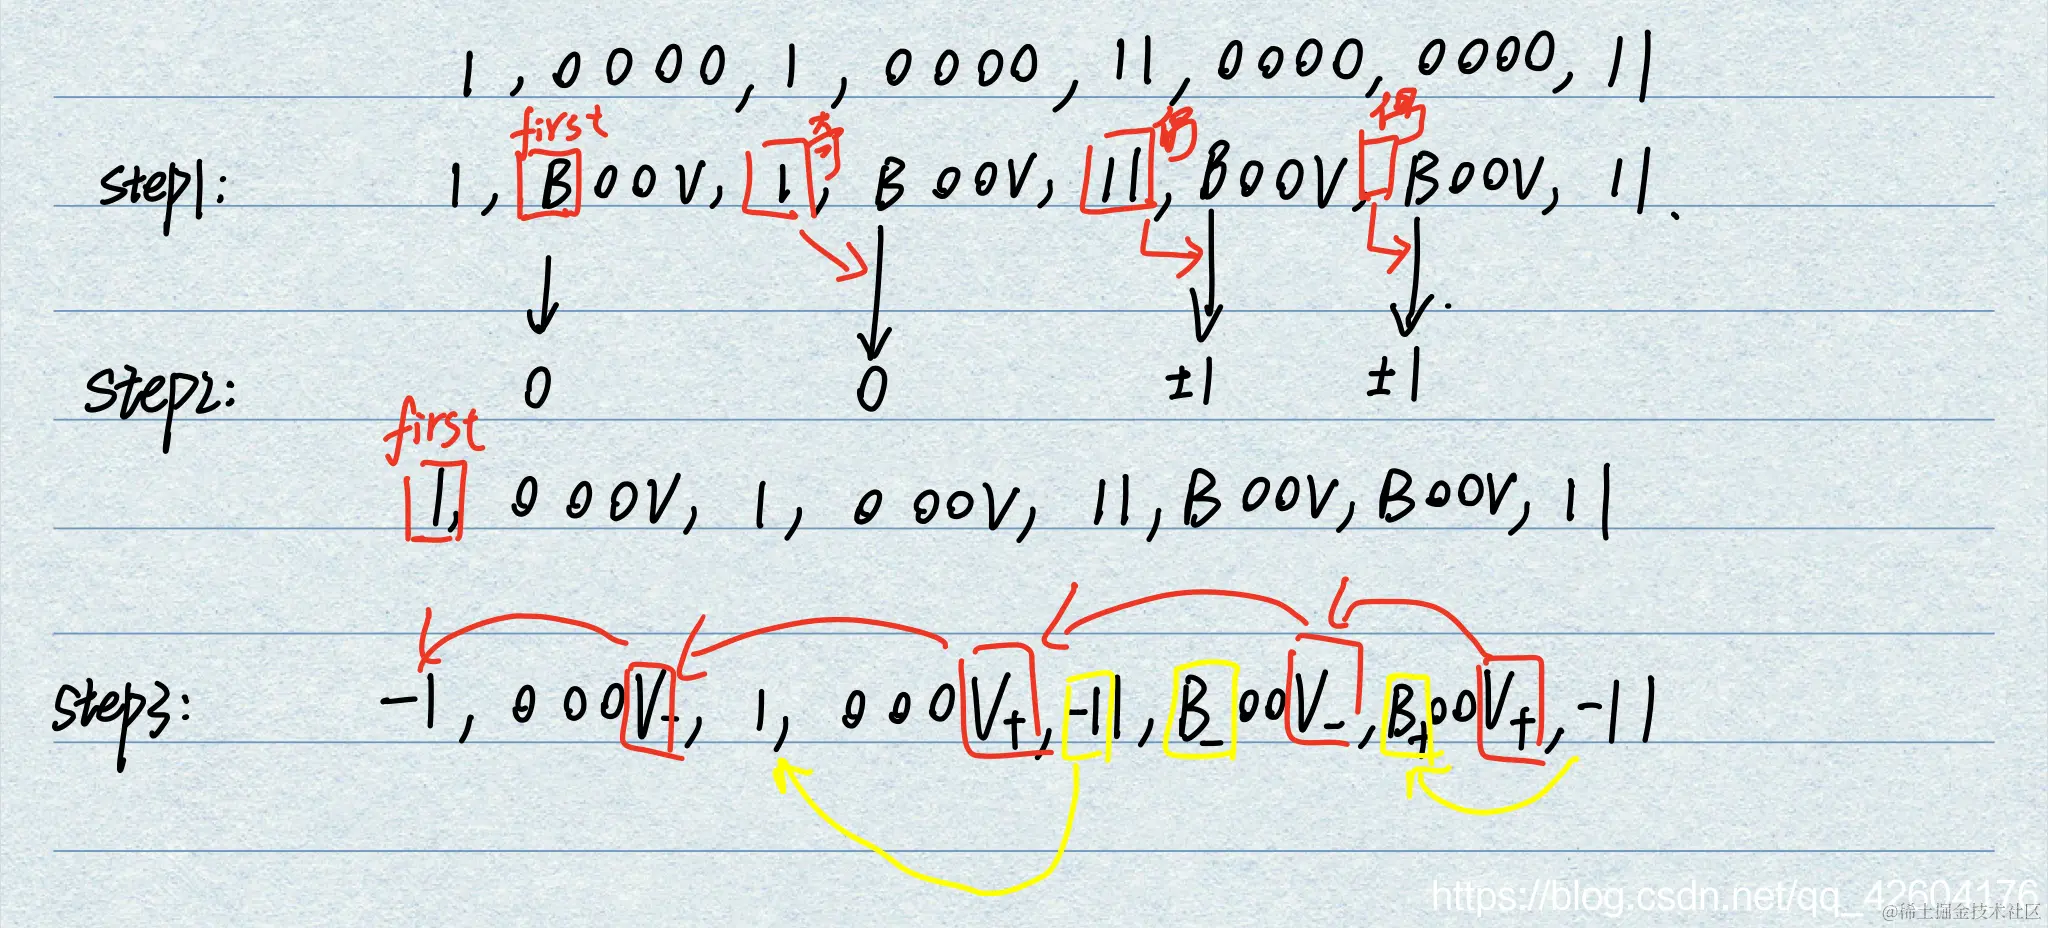 1, 0000, 1, 0000, 11, 0000, 0000, 11
first 奇 偶 偶
step1: 1, B00V, 1, B00V, 11, B00V, B00V, 11.
step2: 0 0 ±1 ±1
first
1, 000V, 1, 000V, 11, B00V, B00V, 11
step3: -1, 000V-, 1, 000V+, -11, B-00V-, B+00V+, -11
https://blog.csdn.net/qq_42604176
@稀土掘金技术社区